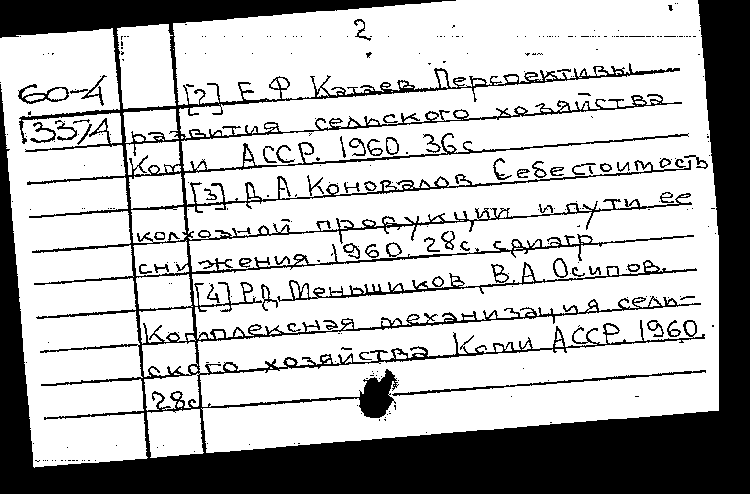 2
60-4 [2] Е Ф Катаев Перспективы
13374 развития сельского хозяйства
Коми АССР. 1960. 36с
[3]. Д. А. Коновалов Себестоимость
колхозной продукции и пути ее
снижения. 1960. 28с. сдиагр.
[4] Р.Д. Меньшиков, В.А. Осипов.
Комплексная механизация сель-
ского хозяйства Коми АССР. 1960.
28с.